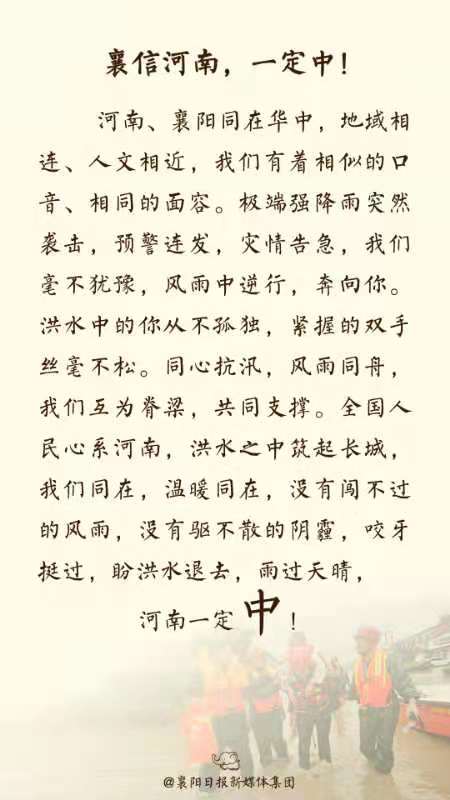 襄信河南，一定中！
河南、襄阳同在华中，地域相
连、人文相近，我们有着相似的口
音、相同的面容。极端强降雨突然
袭击，预警连发，灾情告急，我们
毫不犹豫，风雨中逆行，奔向你。
洪水中的你从不孤独，紧握的双手
丝毫不松。同心抗汛，风雨同舟，
我们互为脊梁，共同支撑。全国人
民心系河南，洪水之中筑起长城，
我们同在，温暖同在，没有闯不过
的风雨，没有驱不散的阴霾，咬牙
挺过，盼洪水退去，雨过天晴，
河南一定中！
@襄阳日报新媒体集团